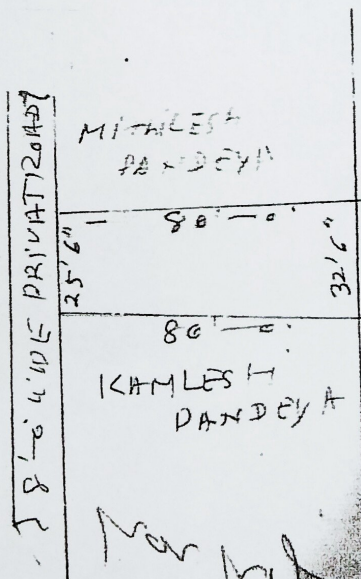 8'-0" WIDE PRIVAT ROAD
MITHLESH
PANDEYA
80'-0"
25'6"
32'6"
80'-0"
KAMLESH
PANDEYA